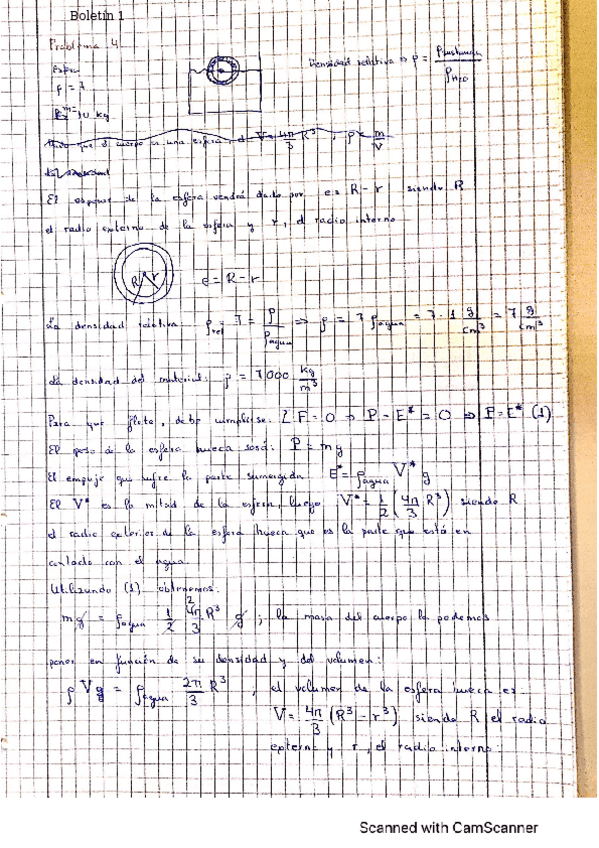 Boletín 1
Problema 4
Esfera
ρ = 7
m = 10 kg
Densidad relativa ⇒ ρ = ρsustancia / ρH₂O
que el cuerpo es una esfera, V = 4π/3 R³, ρ = m/V
El espesor de la esfera vendrá dado por e = R - r siendo R
el radio externo de la esfera y r, el radio interno
R r
e = R - r
La densidad relativa ρrel = 7 = ρ/ρagua ⇒ ρ = 7 ρagua = 7 · 1 g/cm³ = 7 g/cm³
La densidad del material: ρ = 7000 kg/m³
Para que flote, debe cumplirse: ΣF = 0 ⇒ P - E* = 0 ⇒ P = E* (1)
El peso de la esfera hueca será: P = mg
El empuje que sufre la parte sumergida E* = ρagua V* g
El V* es la mitad de la esfera, luego V* = 1/2 (4π/3 R³) siendo R
el radio exterior de la esfera hueca que es la parte que está en
contacto con el agua.
Utilizando (1) obtenemos:
mg = ρagua 1/2 4π/3 R³ g ; la masa del cuerpo la podemos
2
poner en función de su densidad y del volumen:
ρ V g = ρagua 2π/3 R³, el volumen de la esfera hueca es
V = 4π/3 (R³ - r³) siendo R el radio
externo y r, el radio interno.
Scanned with CamScanner